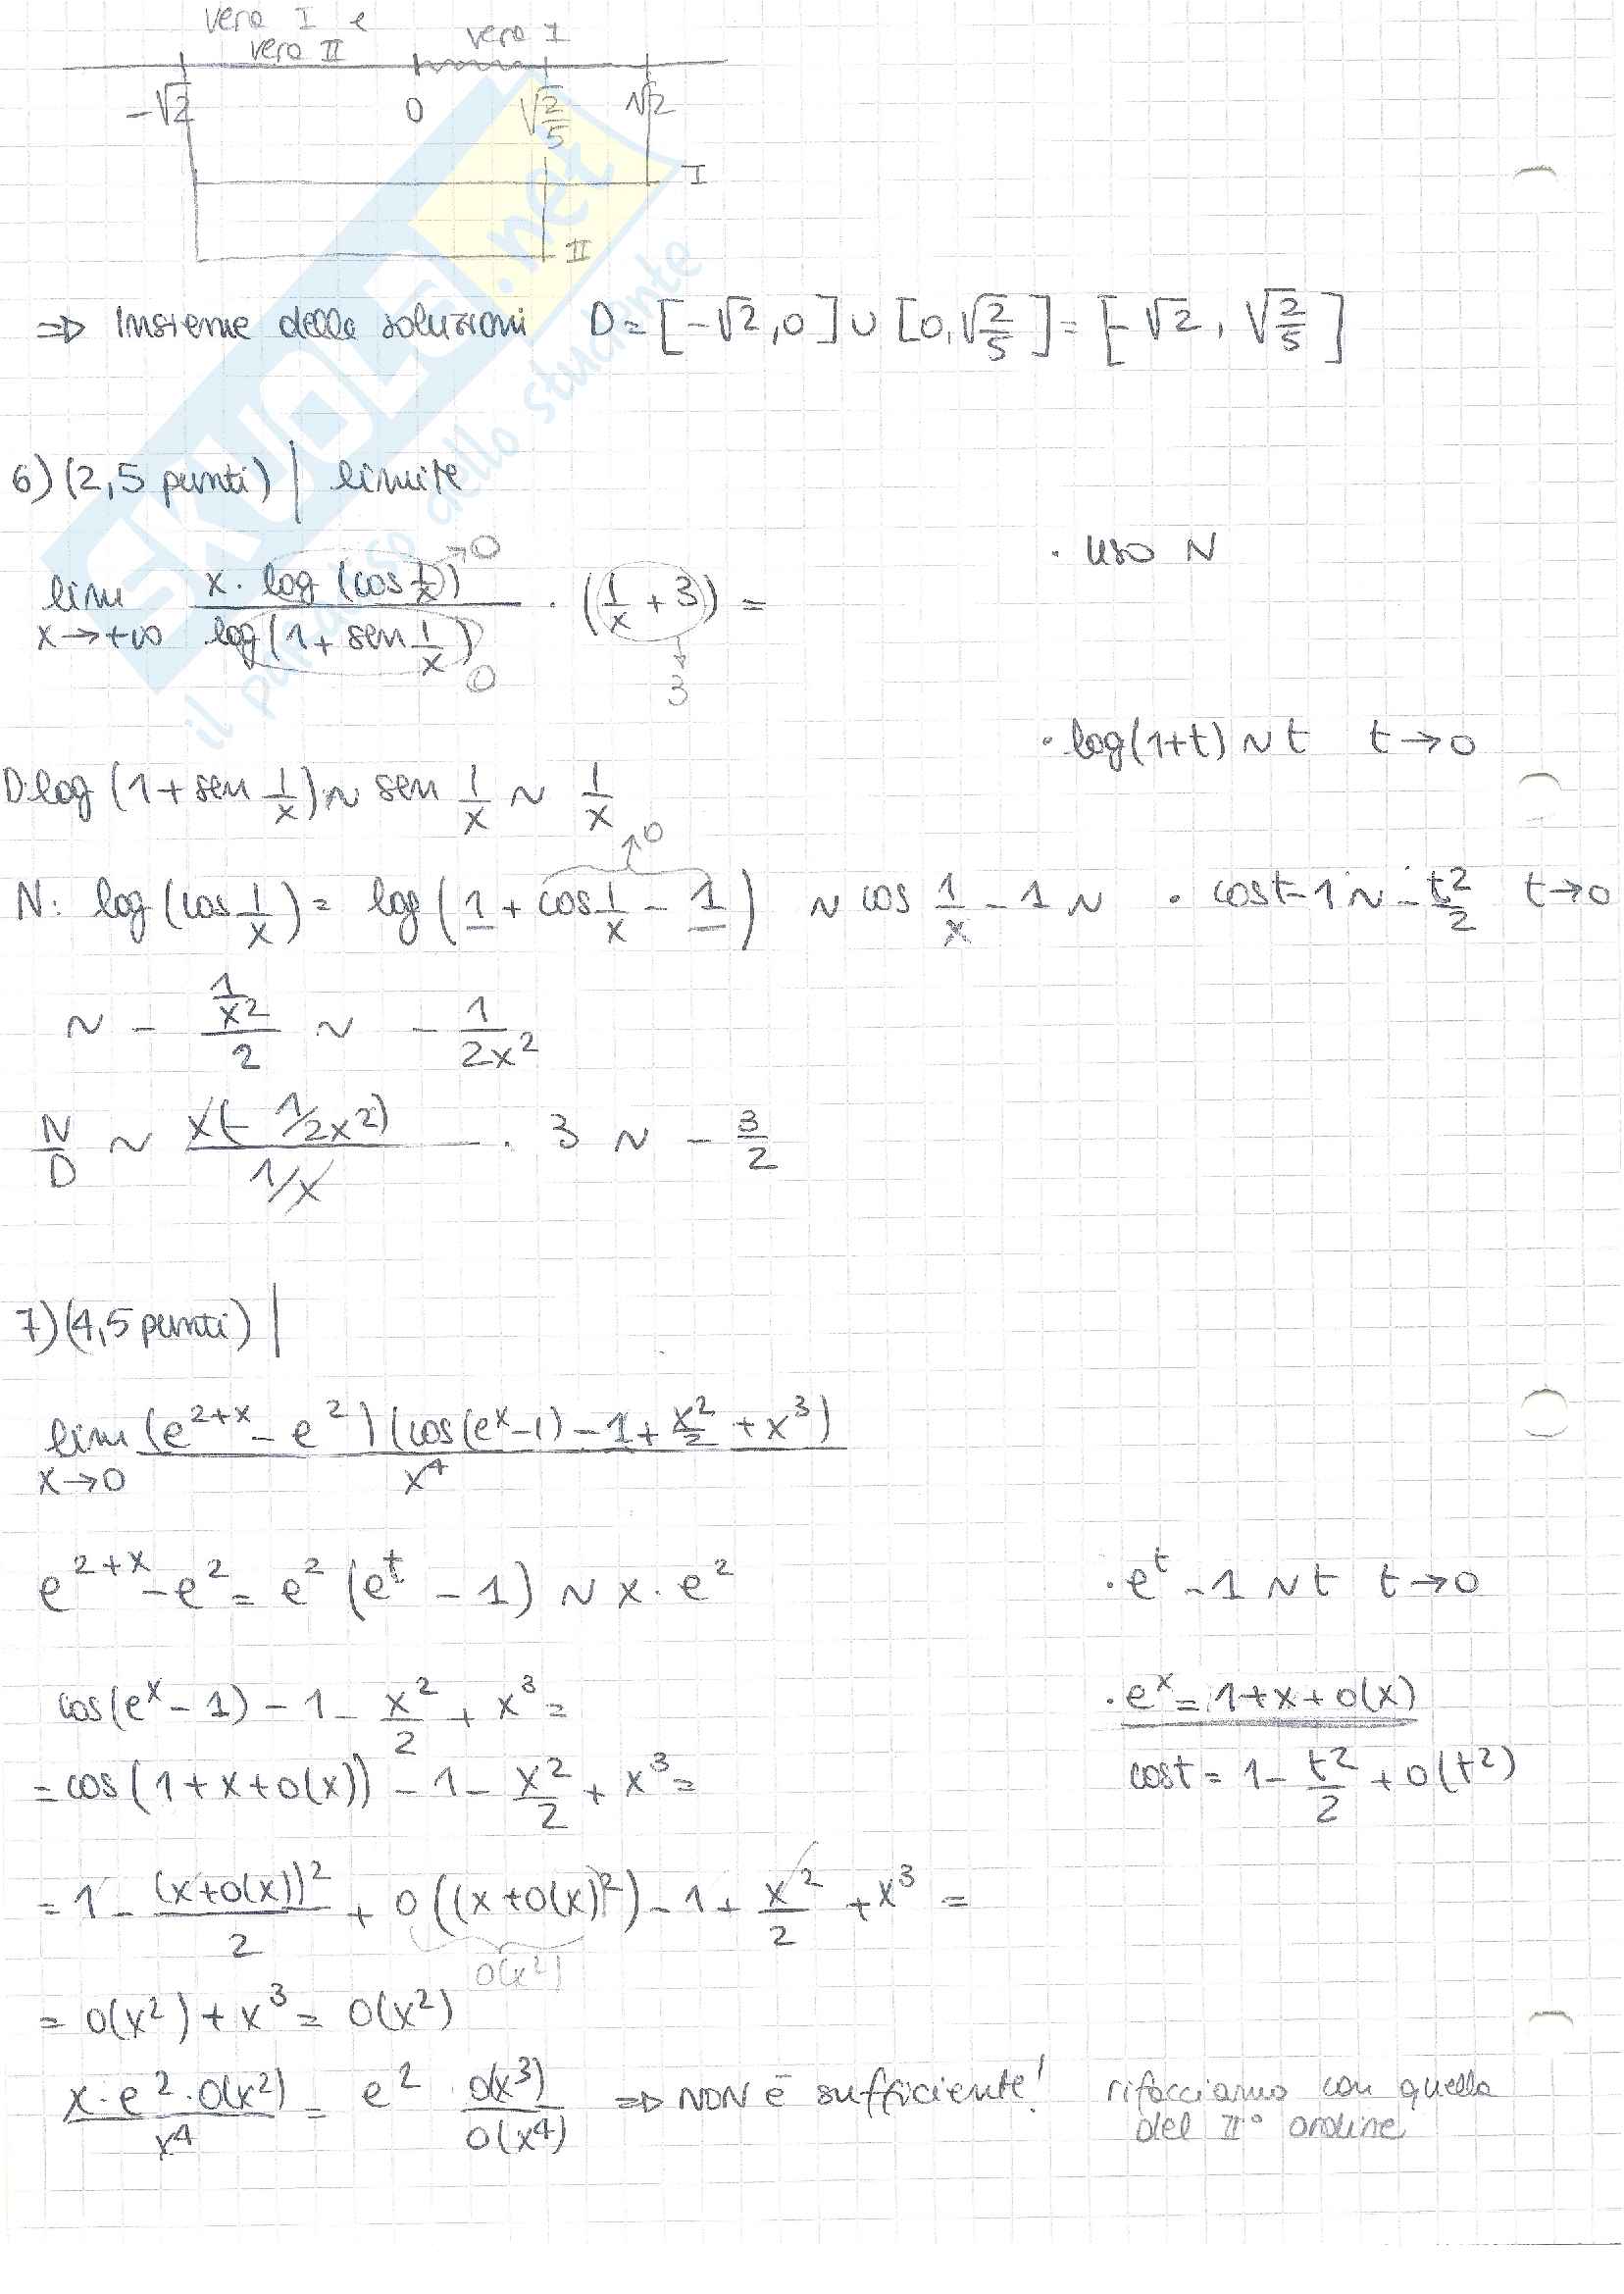 vera I e
vera II
vera I
-√2 0 √(2/5) √2
I
II
⇒ Insieme delle soluzioni D = [-√2, 0] ∪ [0, √(2/5)] = [-√2, √(2/5)]
SKUOLA.net
il paradiso dello studente
6) (2,5 punti) | limite
lim x→+∞ (x · log(cos 1/x)) / (log(1 + sen 1/x)) · (1/x + 3) =
→ 0
0
3
· uso ~
· log(1+t) ~ t t → 0
D: log(1 + sen 1/x) ~ sen 1/x ~ 1/x
→ 0
N: log(cos 1/x) = log(1 + cos 1/x - 1) ~ cos 1/x - 1 ~ · cost - 1 ~ - t²/2 t → 0
~ - (1/x²)/2 ~ - 1/(2x²)
N/D ~ (x(- 1/2x²)) / (1/x) · 3 ~ - 3/2
7) (4,5 punti) |
lim x→0 ((e^(2+x) - e²)(cos(e^x - 1) - 1 + x²/2 + x³)) / x⁴
e^(2+x) - e² = e² (e^t - 1) ~ x · e² · e^t - 1 ~ t t → 0
cos(e^x - 1) - 1 - x²/2 + x³ = · e^x = 1 + x + o(x)
= cos(1 + x + o(x)) - 1 - x²/2 + x³ = cost = 1 - t²/2 + o(t²)
= 1 - (x + o(x))²/2 + o((x + o(x))²) - 1 + x²/2 + x³ =
o(x²)
= o(x²) + x³ = o(x²)
(x · e² · o(x²)) / x⁴ = e² · o(x³)/o(x⁴) ⇒ NON è sufficiente! rifacciamo con quella
del II° ordine